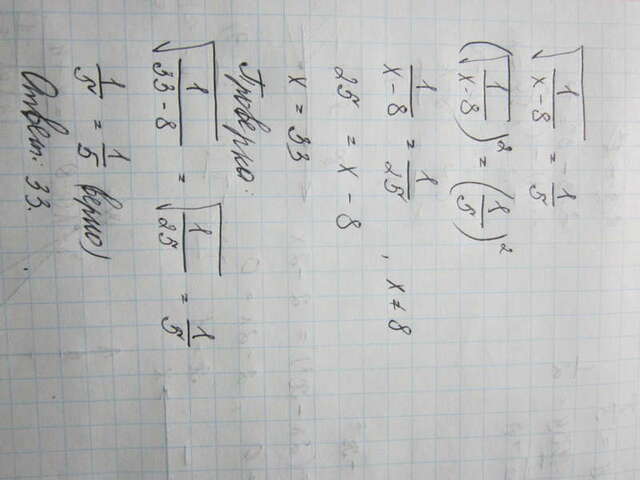 √(1/(x-8)) = 1/5
(√(1/(x-8)))² = (1/5)²
1/(x-8) = 1/25 , x ≠ 8
25 = x - 8
x = 33
Проверка:
√(1/(33-8)) = √(1/25) = 1/5
1/5 = 1/5 верно)
Ответ: 33.